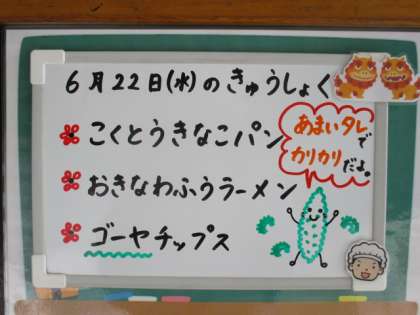 6月22日(水)のきゅうしょく
こくとうきなこパン
おきなわふうラーメン
ゴーヤチップス
あまいタレで
カリカリだよ。